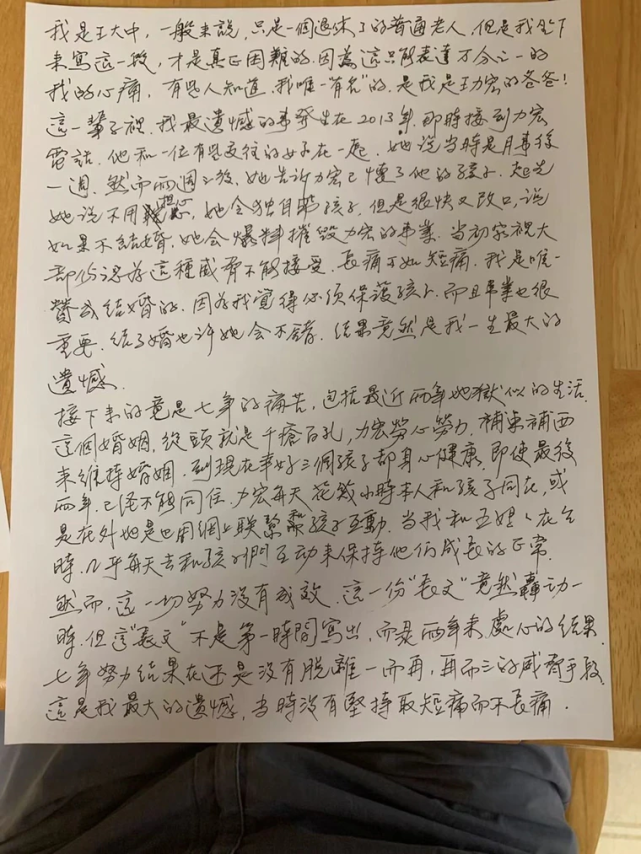 我是王大中，一般來說，只是一個退休了的普通老人，但是我坐下
來寫這一段，才是真正困難的，因為這只能表達万分之一的
我的心痛，有些人知道，我唯一"有名"的，是我是王力宏的爸爸！
這一輩子裡，我最遺憾的事發生在2013年，那時接到力宏
電話，他和一位有些交往的女子在一起，她說當時是月事後
一週，然而兩週之後，她告訴力宏已懷了他的孩子，起先
她說不用擔心，她會獨自帶孩子，但是很快又改口，說
如果不結婚，她會爆料摧毀力宏的事業，當初家裡大
部份認為這種威脅不能接受，長痛不如短痛，我是唯一
贊成結婚的，因為我覺得必須保護孩子，而且事業也很
重要，結了婚也許她會不錯，結果竟然是我一生最大的
遺憾，
接下來的竟是七年的痛苦，包括最近兩年地獄似的生活，
這個婚姻，從頭就是千瘡百孔，力宏勞心勞力，補東補西
來維持婚姻，到現在幸好三個孩子都身心健康，即使最後
兩年，已經不能同住，力宏每天花幾小時本人和孩子同在，或
是在外地是也用網上聯繫和孩子互動，當我和王媽媽在台
時，几乎每天去和孩子們互動來保持他们成長的正常，
然而，這一切努力沒有成效，這一份"長文"竟然轟动一
時，但這"長文"不是第一時間寫出，而是兩年來處心的結果，
七年努力結果在还是沒有脫離一而再，再而三的威脅手段
這是我最大的遺憾，當時沒有堅持取短痛而不長痛．